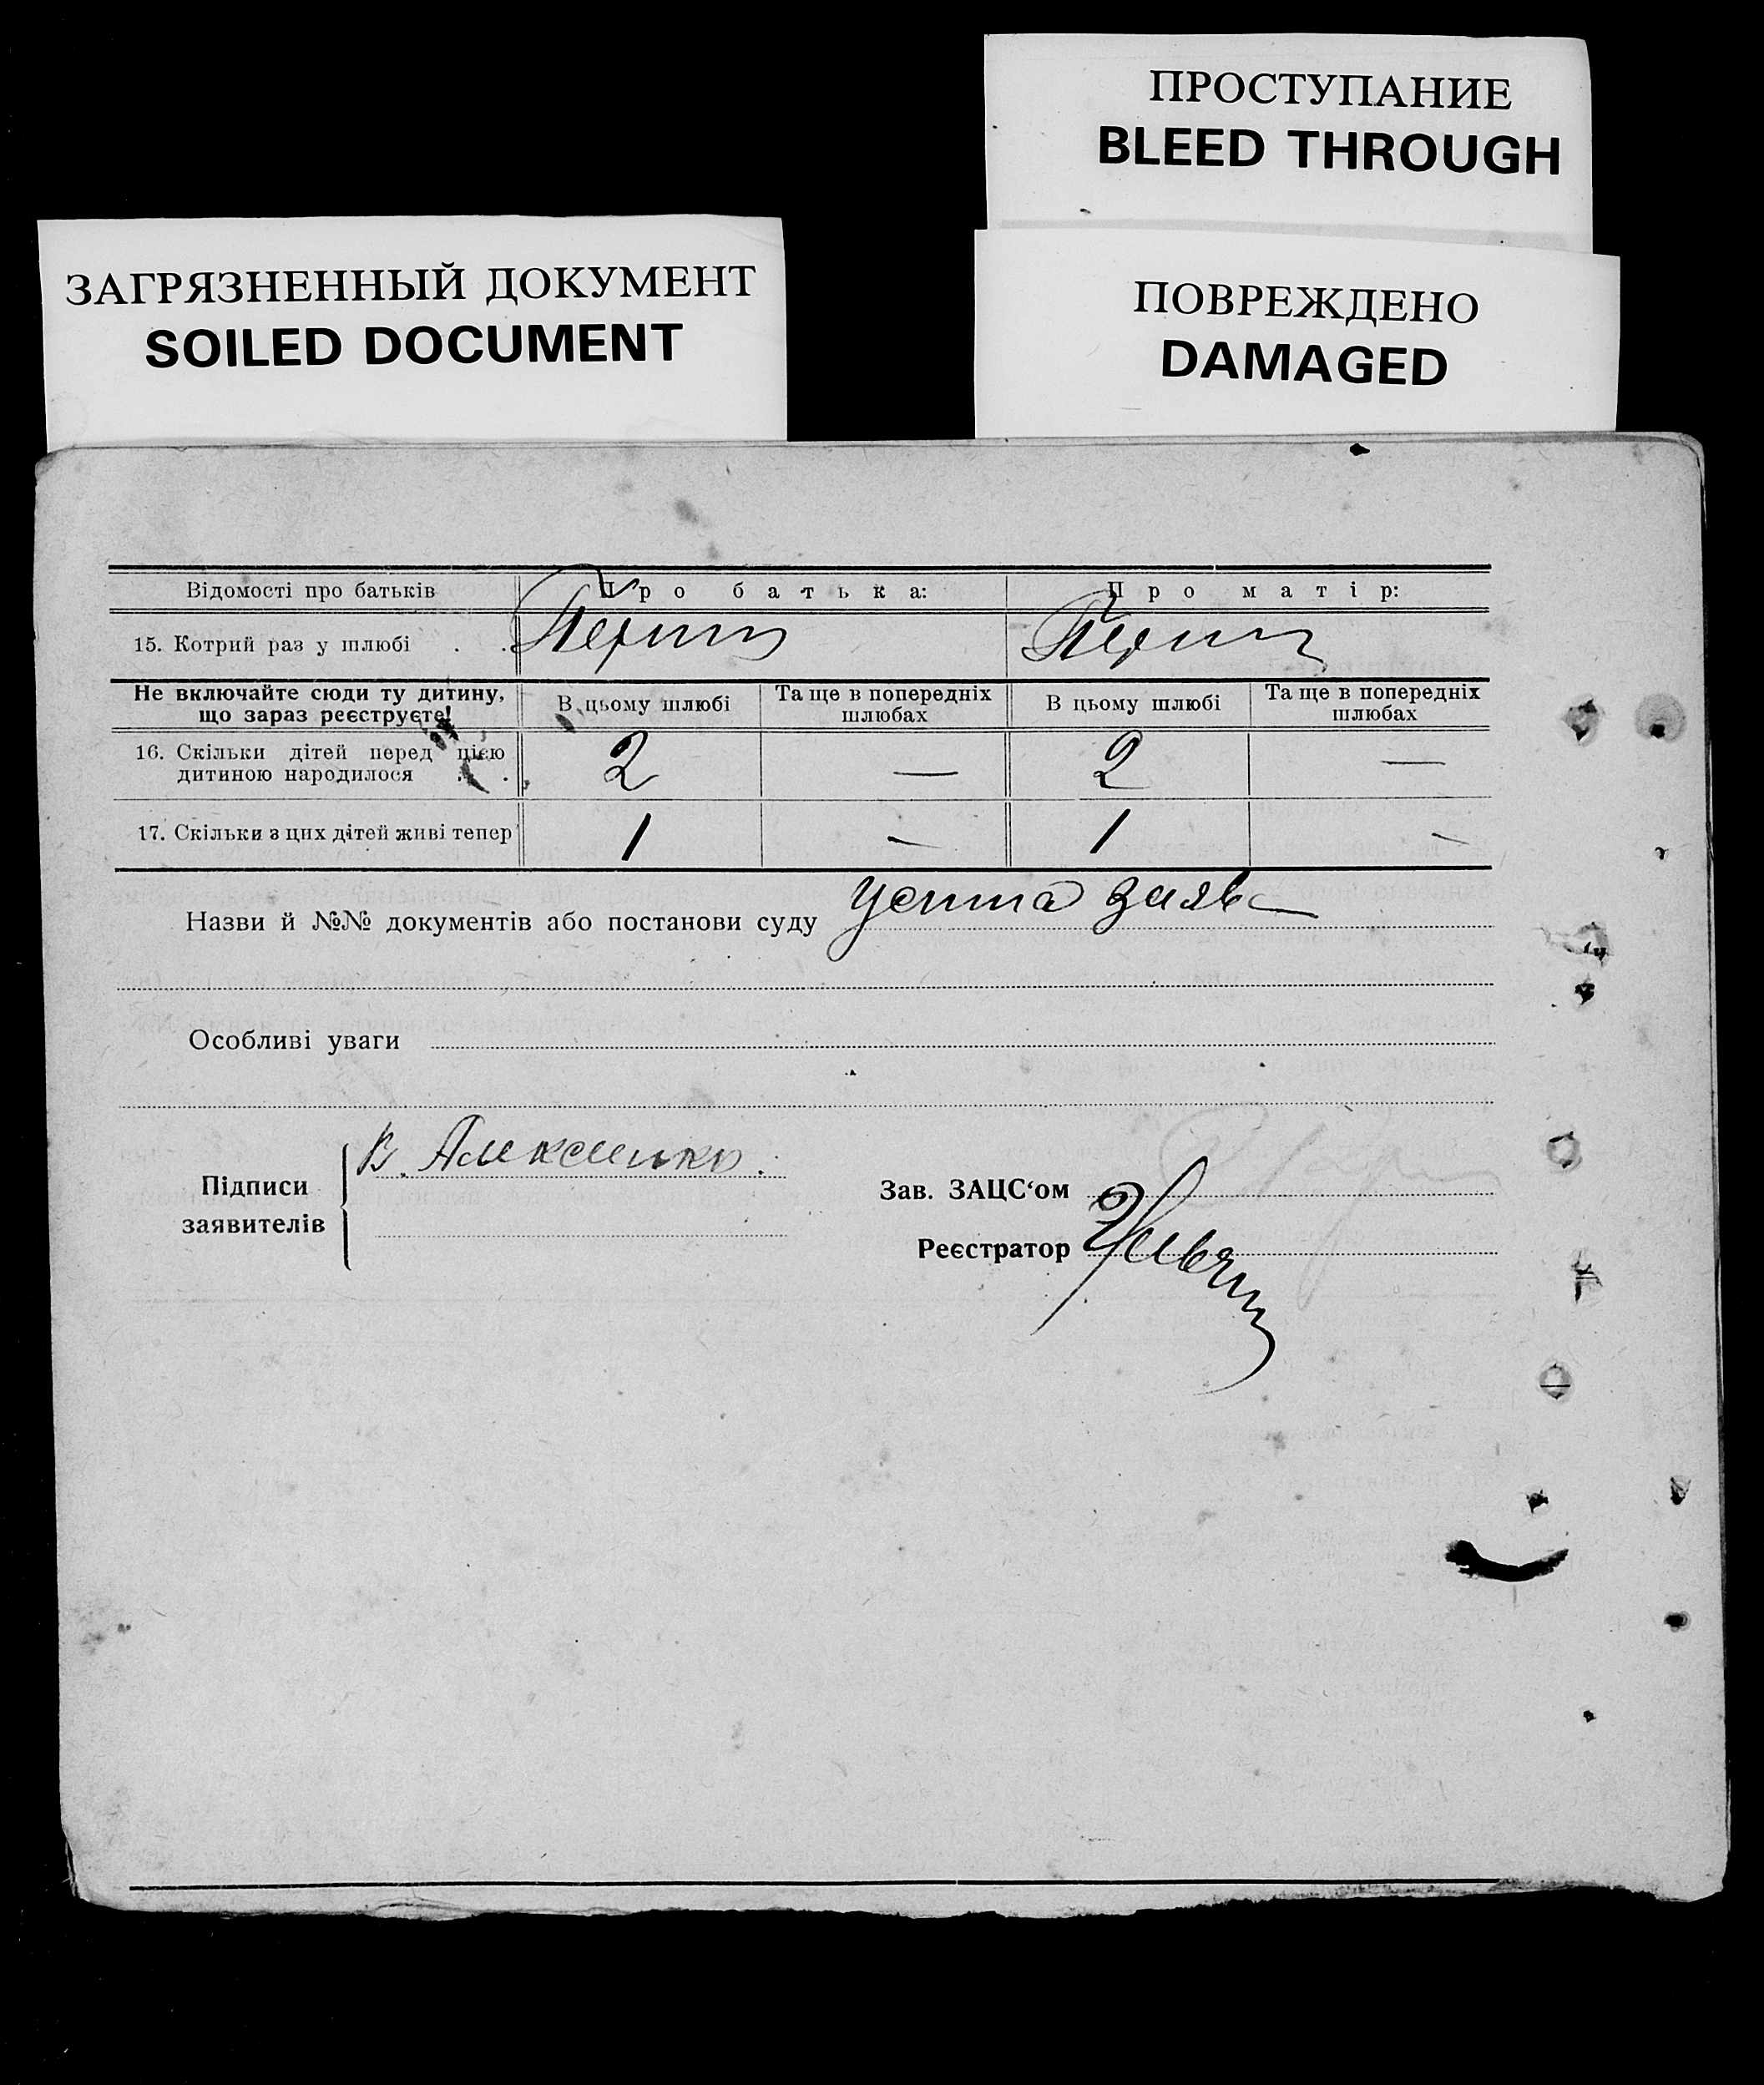 ПРОСТУПАНИЕ
BLEED THROUGH
ЗАГРЯЗНЕННЫЙ ДОКУМЕНТ
SOILED DOCUMENT
ПОВРЕЖДЕНО
DAMAGED
Відомості про батьків Про батька: Про матір:
15. Котрий раз у шлюбі . .
Не включайте сюди ту дитину, що зараз реєструєте!
В цьому шлюбі Та ще в попередніх шлюбах В цьому шлюбі Та ще в попередніх шлюбах
16. Скільки дітей перед цією дитиною народилося . . 2 — 2 —
17. Скільки з цих дітей живі тепер 1 — 1 —
Назви й №№ документів або постанови суду Усния заява
Особливі уваги
Підписи заявителів В. Алексеенко.
Зав. ЗАЦС‘ом
Реєстратор